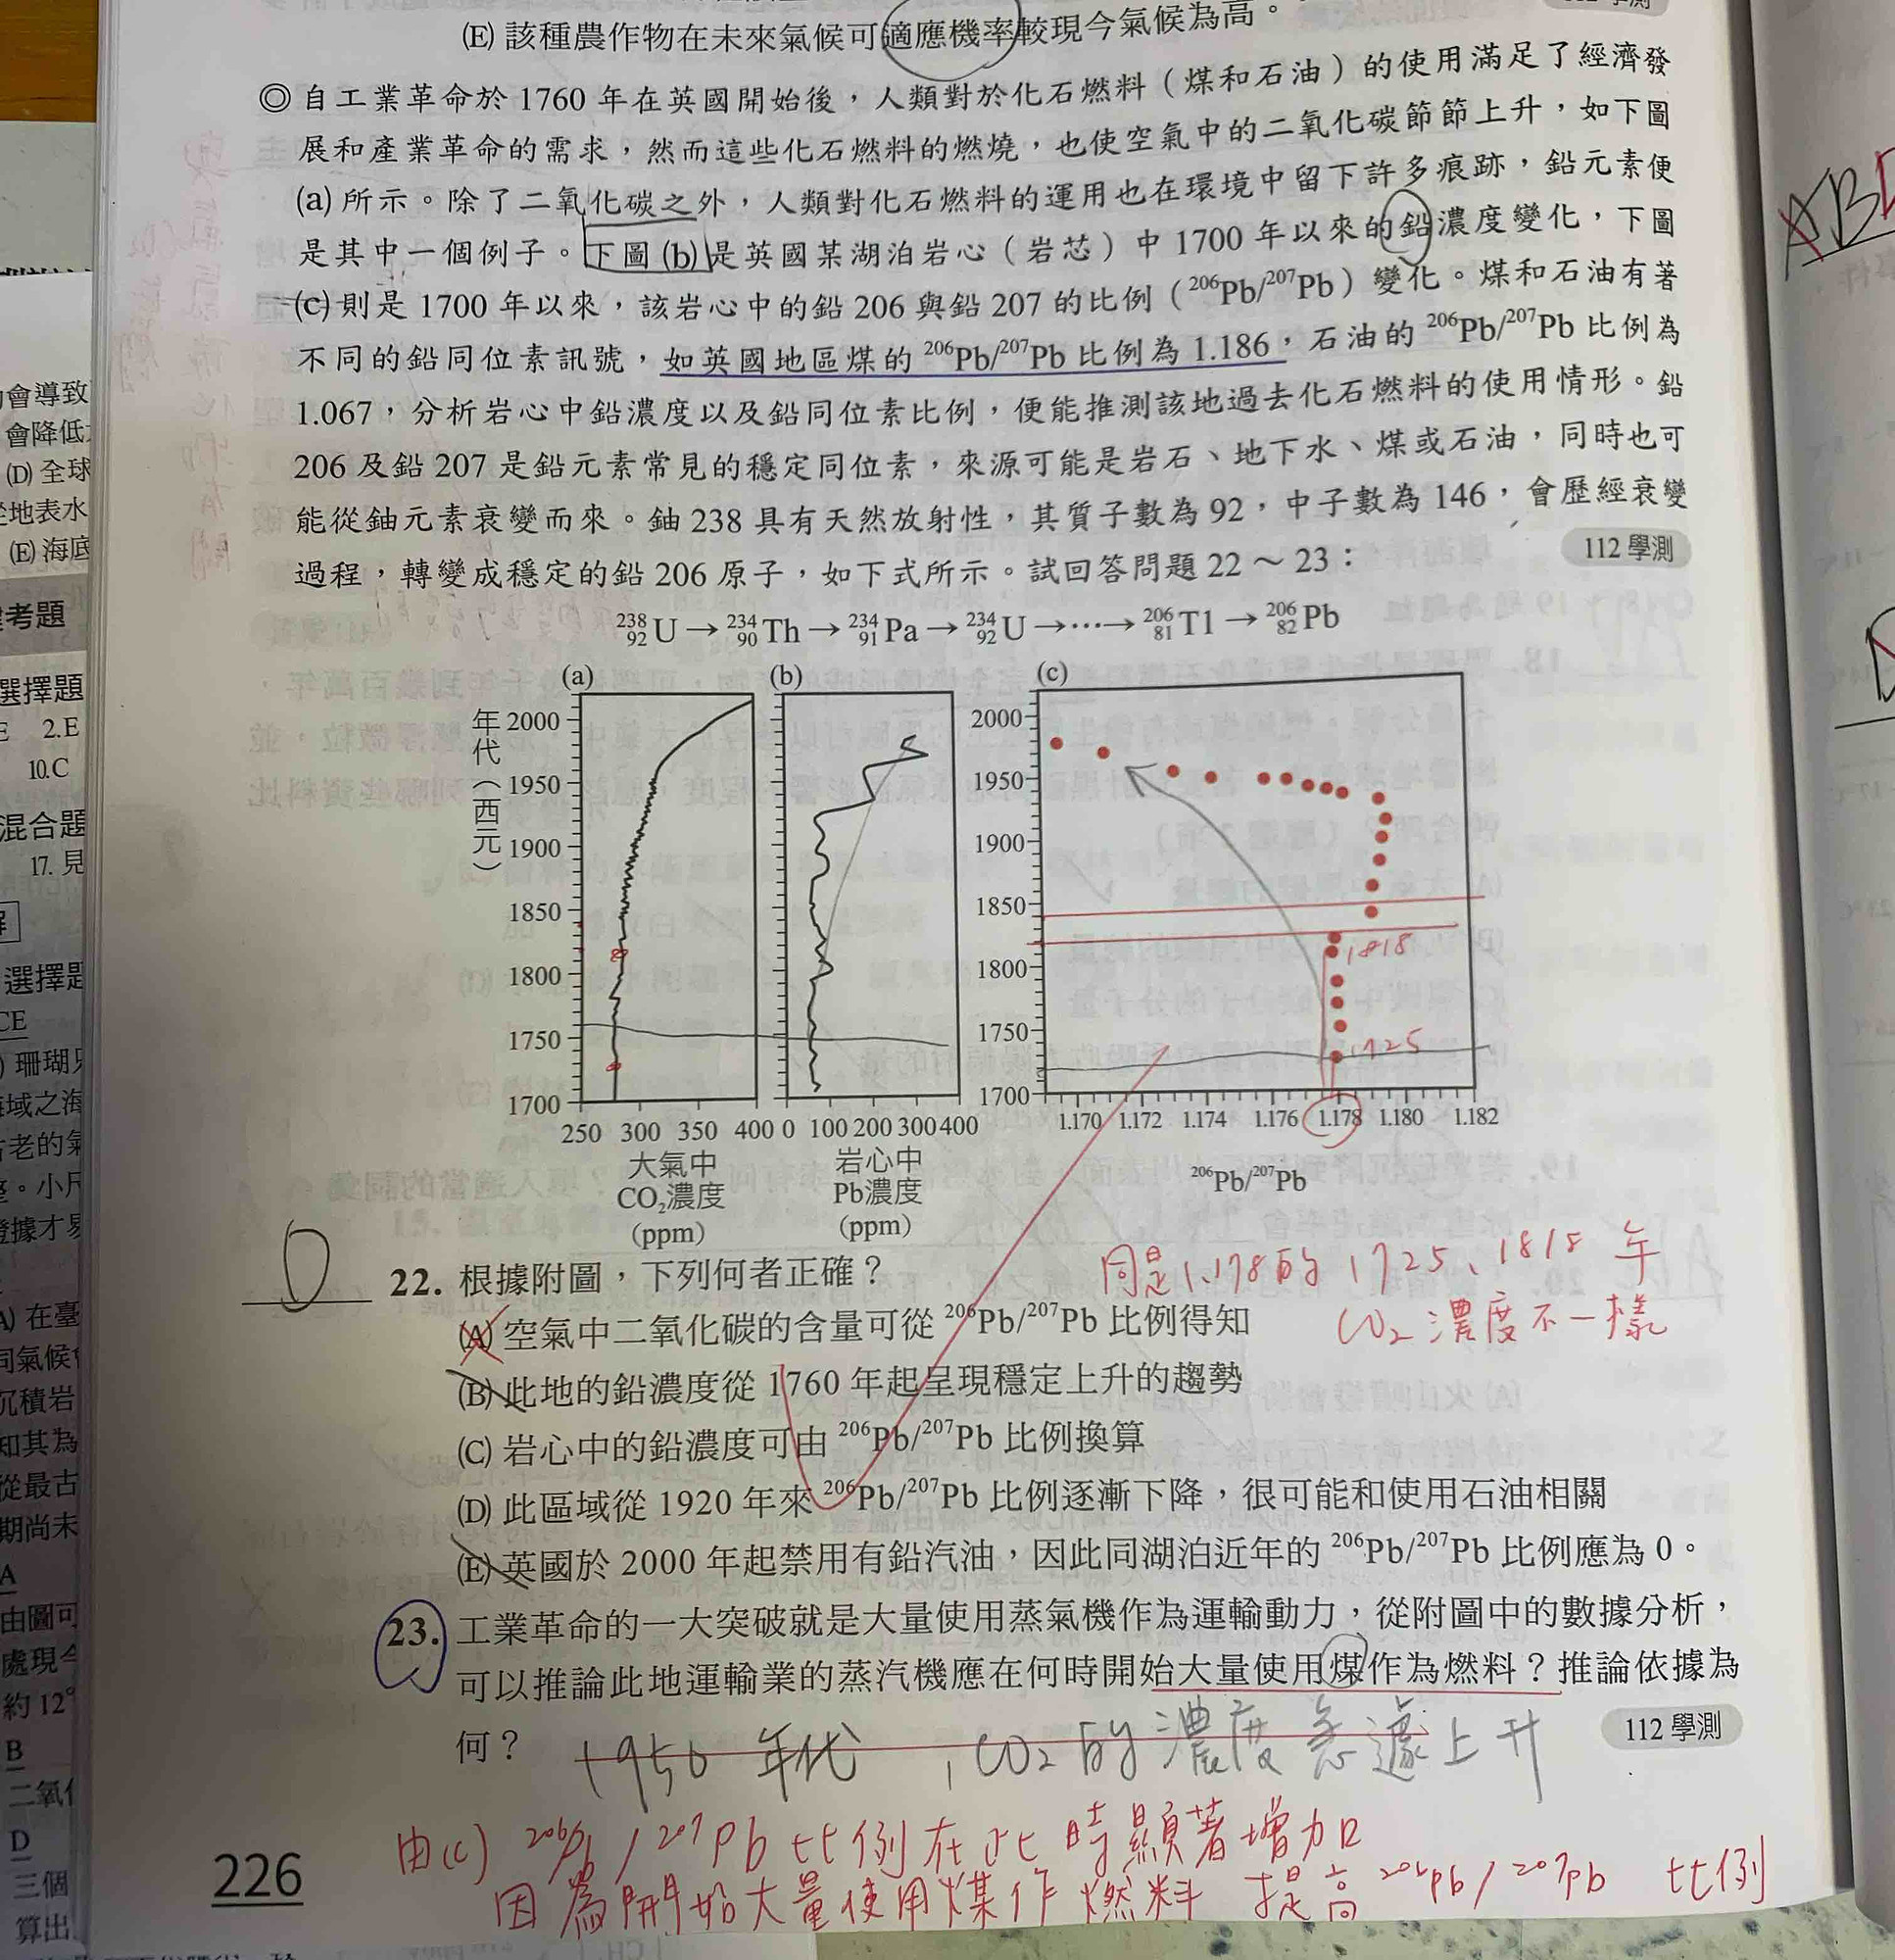 (E) 該種農作物在未來氣候可適應機率較現今氣候為高。
◎ 自工業革命於 1760 年在英國開始後，人類對於化石燃料（煤和石油）的使用滿足了經濟發
展和產業革命的需求，然而這些化石燃料的燃燒，也使空氣中的二氧化碳節節上升，如下圖
(a) 所示。除了二氧化碳之外，人類對化石燃料的運用也在環境中留下許多痕跡，鉛元素便
是其中一個例子。下圖 (b) 是英國某湖泊岩心（岩芯）中 1700 年以來的鉛濃度變化，下圖
(c) 則是 1700 年以來，該岩心中的鉛 206 與鉛 207 的比例（²⁰⁶Pb/²⁰⁷Pb）變化。煤和石油有著
不同的鉛同位素訊號，如英國地區煤的 ²⁰⁶Pb/²⁰⁷Pb 比例為 1.186，石油的 ²⁰⁶Pb/²⁰⁷Pb 比例為
1.067，分析岩心中鉛濃度以及鉛同位素比例，便能推測該地過去化石燃料的使用情形。鉛
206 及鉛 207 是鉛元素常見的穩定同位素，來源可能是岩石、地下水、煤或石油，同時也可
能從鈾元素衰變而來。鈾 238 具有天然放射性，其質子數為 92，中子數為 146，會歷經衰變
過程，轉變成穩定的鉛 206 原子，如下式所示。試回答問題 22～23：
112 學測
²³⁸₉₂U → ²³⁴₉₀Th → ²³⁴₉₁Pa → ²³⁴₉₂U → ⋯ → ²⁰⁶₈₁Tl → ²⁰⁶₈₂Pb
(a) (b) (c)
年代（西元）
2000
1950
1900
1850
1800
1750
1700
250 300 350 400
大氣中
CO₂濃度
(ppm)
0 100 200 300 400
岩心中
Pb濃度
(ppm)
2000
1950
1900
1850
1800
1750
1700
1818
1725
1.170 1.172 1.174 1.176 1.178 1.180 1.182
²⁰⁶Pb/²⁰⁷Pb
同是1.178的 1725、1818 年
CO₂ 濃度不一樣
D
22. 根據附圖，下列何者正確？
(A) 空氣中二氧化碳的含量可從 ²⁰⁶Pb/²⁰⁷Pb 比例得知
(B) 此地的鉛濃度從 1760 年起呈現穩定上升的趨勢
(C) 岩心中的鉛濃度可由 ²⁰⁶Pb/²⁰⁷Pb 比例換算
(D) 此區域從 1920 年來 ²⁰⁶Pb/²⁰⁷Pb 比例逐漸下降，很可能和使用石油相關
(E) 英國於 2000 年起禁用有鉛汽油，因此同湖泊近年的 ²⁰⁶Pb/²⁰⁷Pb 比例應為 0。
23. 工業革命的一大突破就是大量使用蒸氣機作為運輸動力，從附圖中的數據分析，
可以推論此地運輸業的蒸汽機應在何時開始大量使用煤作為燃料？推論依據為
何？
112 學測
1950 年代，CO₂ 的濃度急遽上升
由(c) ²⁰⁶Pb/²⁰⁷Pb 比例在此時顯著增加
因為開始大量使用煤作燃料 提高 ²⁰⁶Pb/²⁰⁷Pb 比例
226
會導致
會降低
(D) 全球
地表水
(E) 海底
考題
選擇題
2.E
10.C
混合題
17. 見
選擇題
CE
在臺
同氣候
沉積岩
知其為
從最古
期尚未
A
由圖可
處現今
約 12°
B
二氧化
D
三個
算出